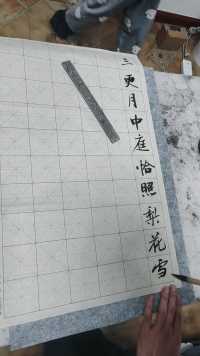 三更月中庭恰照梨花雪